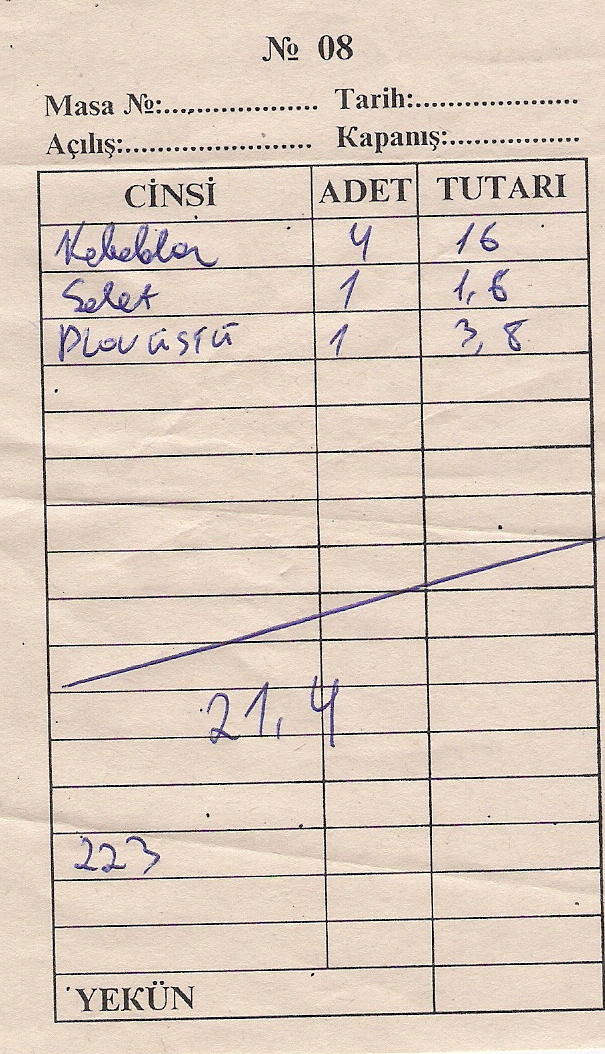 № 08
Masa №:.................... Tarih:....................
Açılış:...................... Kapanış:................
CİNSİ ADET TUTARI
Kebablar 4 16
Salat 1 1,6
Plov üstü 1 3,8
21,4
223
YEKÜN